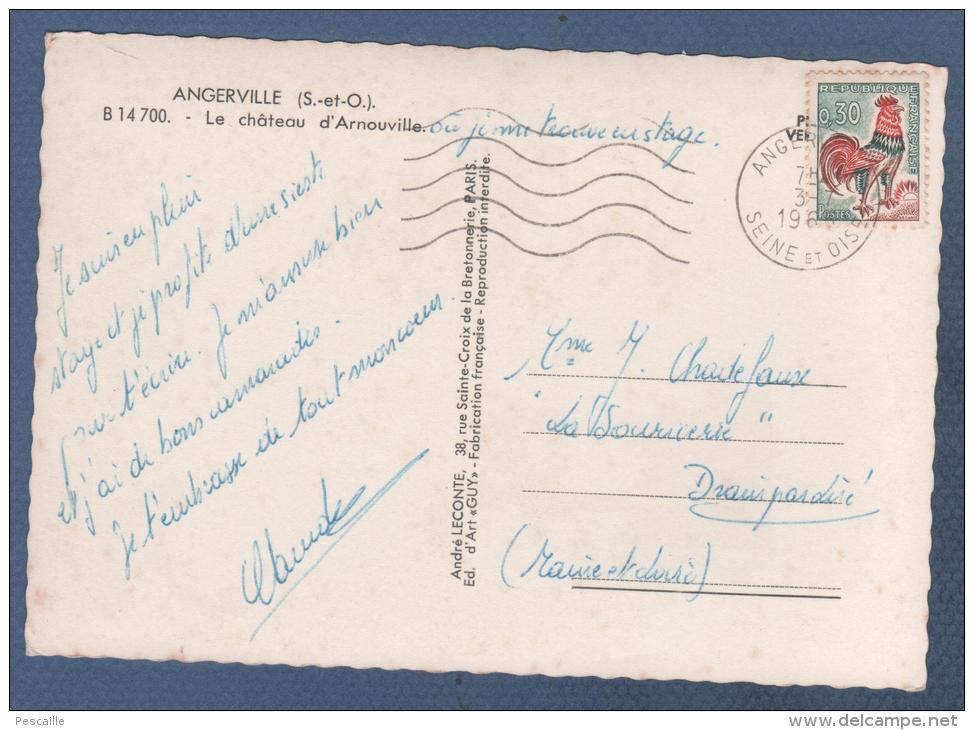 ANGERVILLE (S.-et-O.).
B 14 700. - Le château d'Arnouville.
où je me trouve en stage.
Je suis en plein
stage et je profite d'une sieste
pour t'écrire. Je m'amuse bien
et j'ai de bons camarades.
Je t'embrasse de tout mon cœur.
Claude
André LECONTE, 38, rue Sainte-Croix de la Bretonnerie, PARIS.
Ed. d'Art «GUY» - Fabrication française - Reproduction interdite.
REPUBLIQUE FRANÇAISE
0,30
POSTES
ANGER
7H
3-
196
SEINE ET OISE
Mme J.
"La Souricerie"
Drain par Liré
(Maine et Loire)
Pescaille
delcampe.net